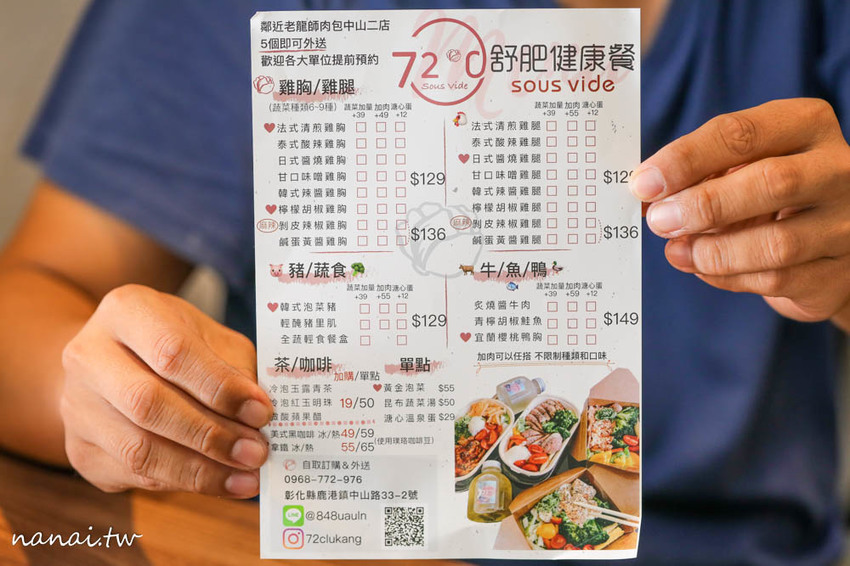 鄰近老龍師肉包中山二店
5個即可外送
歡迎各大單位提前預約
72°C
Sous Vide
舒肥健康餐
sous vide
雞胸/雞腿
(蔬菜種類6-9種)
蔬菜加量 加肉 溏心蛋
+39 +49 +12
法式清煎雞胸
泰式酸辣雞胸
日式醬燒雞胸
甘口味噌雞胸
韓式辣醬雞胸
檸檬胡椒雞胸
$129
麻辣
剝皮辣椒雞胸
鹹蛋黃醬雞胸
$136
蔬菜加量 加肉 溏心蛋
+39 +55 +12
法式清煎雞腿
泰式酸辣雞腿
日式醬燒雞腿
甘口味噌雞腿
韓式辣醬雞腿
檸檬胡椒雞腿
$129
麻辣
剝皮辣椒雞腿
鹹蛋黃醬雞腿
$136
豬/蔬食
蔬菜加量 加肉 溏心蛋
+39 +55 +12
韓式泡菜豬
輕醃豬里肌
全蔬輕食餐盒
$129
牛/魚/鴨
蔬菜加量 加肉 溏心蛋
+39 +59 +12
炙燒醬牛肉
青檸胡椒鮭魚
宜蘭櫻桃鴨胸
$149
加肉可以任搭 不限制種類和口味
茶/咖啡
加購/單點
冷泡玉露青茶
冷泡紅玉明珠
微酸蘋果醋
19/50
美式黑咖啡 冰/熱 49/59
拿鐵 冰/熱 55/65
(使用璞珞咖啡豆)
單點
黃金泡菜 $55
昆布蔬菜湯 $50
溏心溫泉蛋 $29
自取訂購&外送
0968-772-976
彰化縣鹿港鎮中山路33-2號
LINE
@848uauln
72clukang
nanai.tw